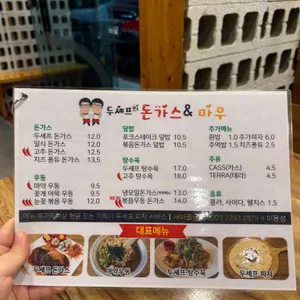 두셰프의 돈가스 & 마우
돈가스
두셰프 돈가스 12.0
일식 돈가스 12.0
고추 돈가스 13.5
치즈 퐁듀 돈가스 13.5
우동
마약 우동 9.5
꽃게 어묵 우동 9.5
눈꽃 볶음 우동 12.0
덮밥
포크스테이크 덮밥 10.5
볶음돈가스 덮밥 10.5
탕수육
두셰프 탕수육 17.0
고추 탕수육 18.0
냉모밀돈가스 13.5
볶음우동 돈가스 14.0
추가메뉴
흰밥 1.0 추가피자 6.0
주먹밥 1.5 치즈퐁듀 2.5
주류
CASS(카스) 4.5
TERRA(테라) 4.5
음료
콜라, 사이다, 웰치스 2.0
대표메뉴
두셰프 돈가스
마약우동
두셰프 탕수육
두셰프 피자